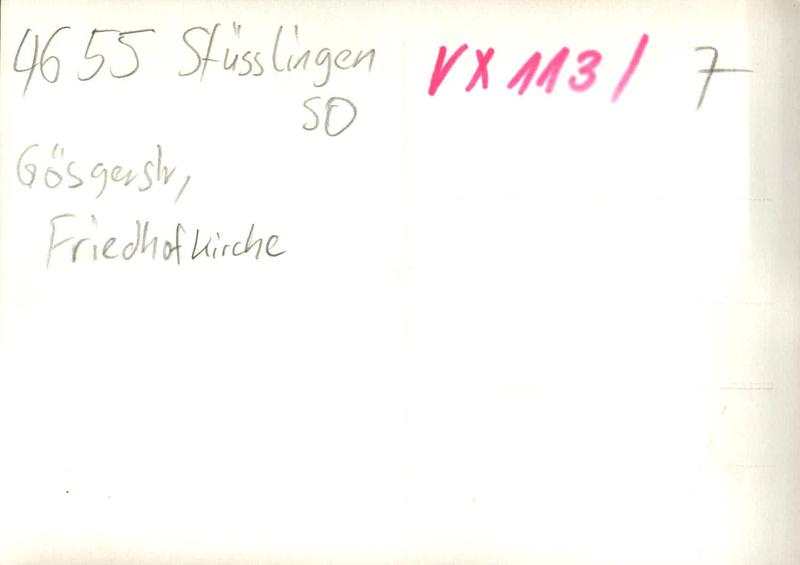 4655 Stüsslingen
SO
Gösgerstr,
Friedhofkirche
VX 113 / 7